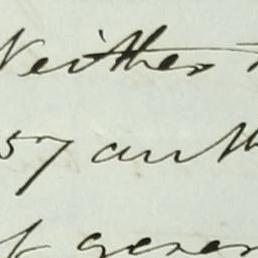 Neither
57 auth
of gener